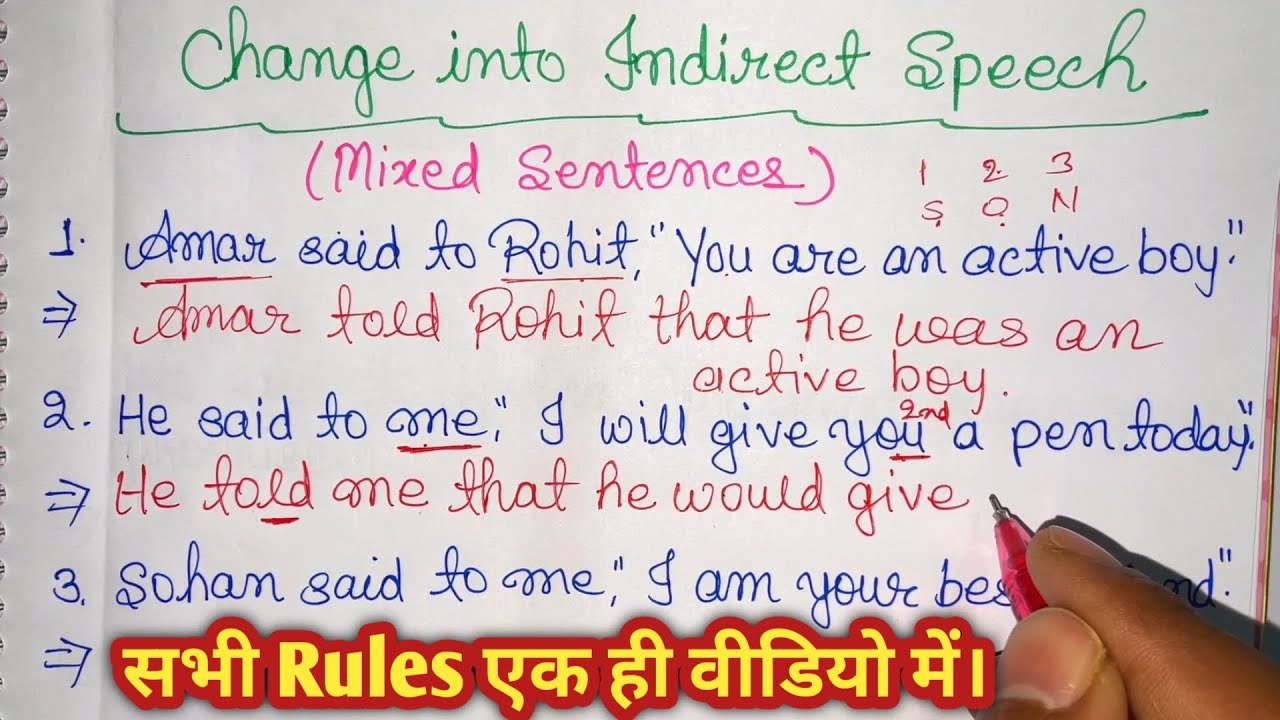 Change into Indirect Speech
(Mixed Sentences)
1 2 3
S O N
1. Amar said to Rohit, "You are an active boy."
⇒ Amar told Rohit that he was an
active boy.
2nd
2. He said to me, "I will give you a pen today."
⇒ He told me that he would give
3. Sohan said to me, "I am your
⇒
सभी Rules एक ही वीडियो में।